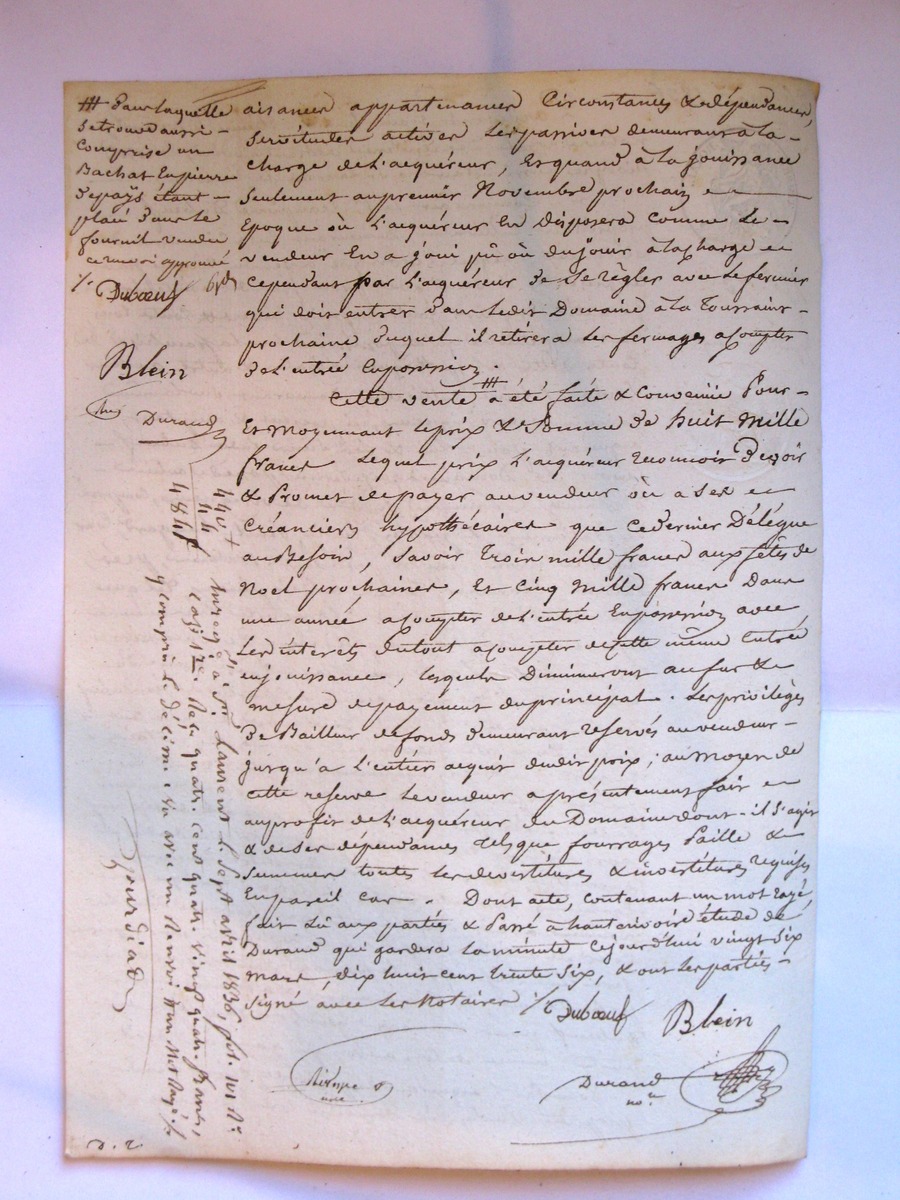 aisances appartenances Circonstances & dépendances,
Servitudes actives et passives demeurant à la
charge de l'acquéreur, Et quand à la jouissance
seulement au premier Novembre prochain
Epoque où l'acquéreur En Disposera comme le
vendeur En a joui pû où du jouir à la charge
cependant par l'acquéreur de se règler avec le fermier
qui doit entrer dans ledit Domaine à la Toussaint
prochaine duquel il retirera les fermages a compter
de l'entrée En possession.
Cette vente # a été faite & Convenue Pour
Et moyennant le prix & Somme de huit Mille
francs lequel prix l'acquéreur reconnoit Devoir
& Promet de payer au vendeur où a ses
Créanciers hypothécaires que ce dernier Délégue
au Besoin, Savoir Trois mille francs aux fêtes de
Noel prochaines, Et Cinq Mille francs Dans
une année a compter de l'entrée En possession avec
les intérêts du tout a compter de cette même Entrée
en jouissance, lesquels Diminueront au fur &
mesure du payement du principal. Les privilèges
De Bailleur de fonds demeurant reservés au vendeur
jusqu'a l'entier acquit dudit prix; au moyen de
cette reserve le vendeur a présentement fait
au profit de l'acquéreur du Domaine dont il s'agit
& de ses dépendances tels que fourrages Paille &
Semences toutes les devestitures & investitures requises
En pareil cas. Dont acte, contenant un mot rayé,
fait Lû aux parties & Passé à hauterivoire étude de
Durand qui gardera la minute Cejourd'hui vingt six
mars, dix huit cent trente six, & ont les parties
signé avec les Notaires /.
Duboeuf Blein
Durand
nore
# dans laquelle
se trouve aussi
Comprise un
Bachat En pierre
de pays étant
placé dans le
fournil vendu
ce renvoi approuvé
/. Duboeuf
Blein
Durand
440
44
484
Enreg.é à St. Laurent le Sept avril 1836, fol.
Case 1re. Reçu quatre cent quatre vingt quatre francs,
y compris le décime avec un Renvoi & un Mot Rayé.
D. 2